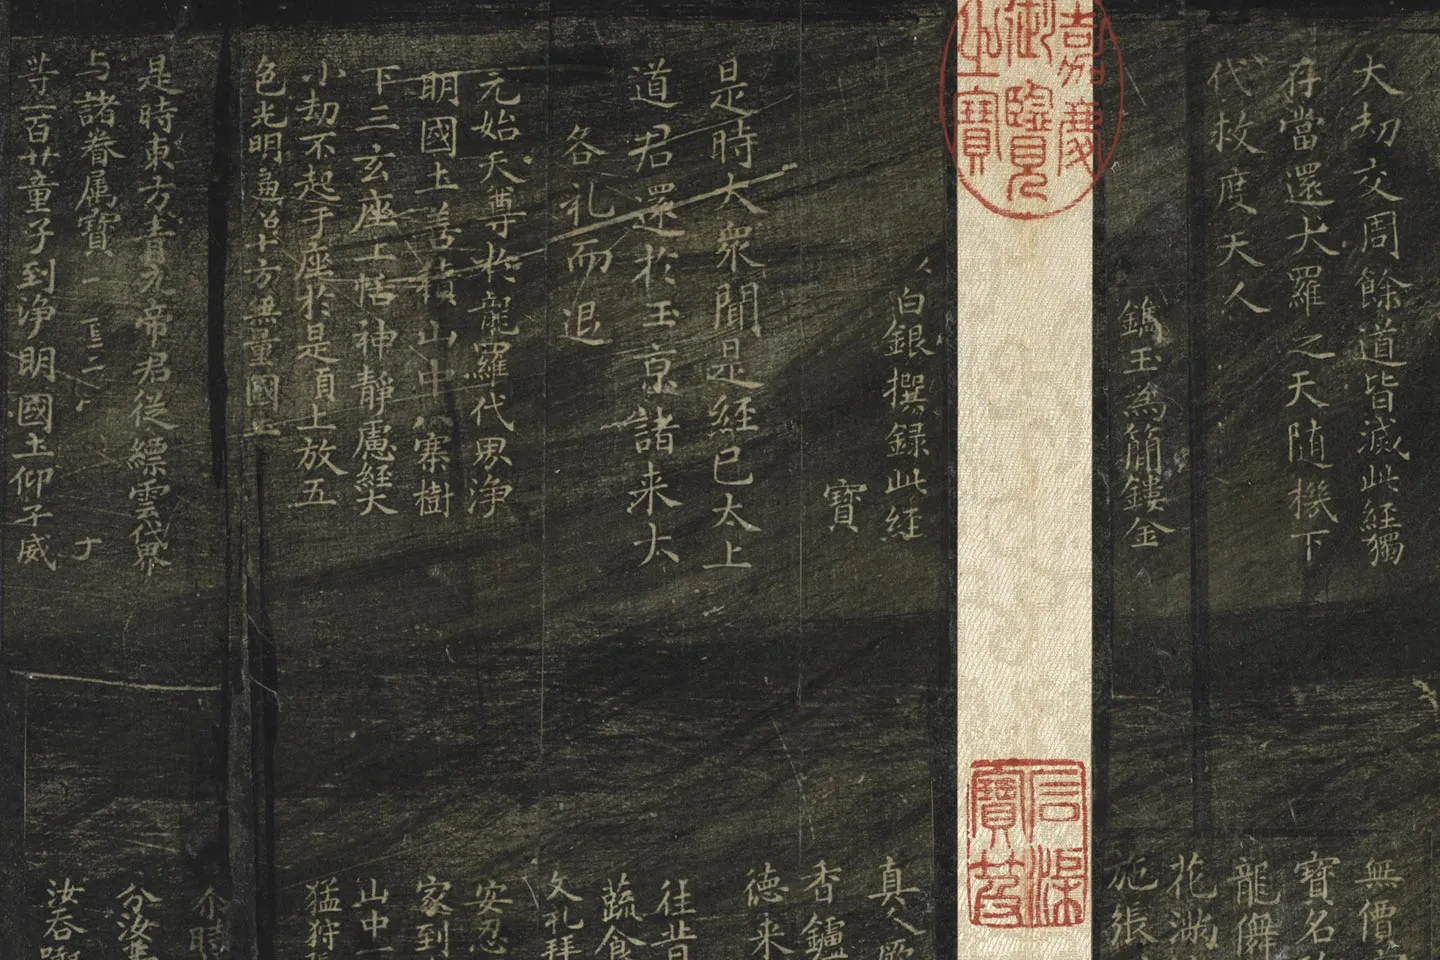 大劫交周餘道皆滅此経獨
存當還大羅之天随機下
代救度天人
鐫玉為簡鏤金
嘉慶
御覽
之寶
白銀撰録此経
寶
是時大衆聞是経已太上
道君還於玉京諸来大
各礼而退
元始天尊於龍羅代界浄
明國土善積山中八騫樹
下三玄座上恬神靜慮経大
小劫不起于座於是頂上放五
色光明遍照十方無量國土
是時東方青元帝君従縹雲代界
与諸眷属寶
等一百廿童子到浄明國土仰子威
無價
寶名
龍儛
花滿
施張
真人
香鑪
德来
往昔
蔬食
文礼拜
安忍
家到
山中一
猛狩
介時
分汝
汝吞